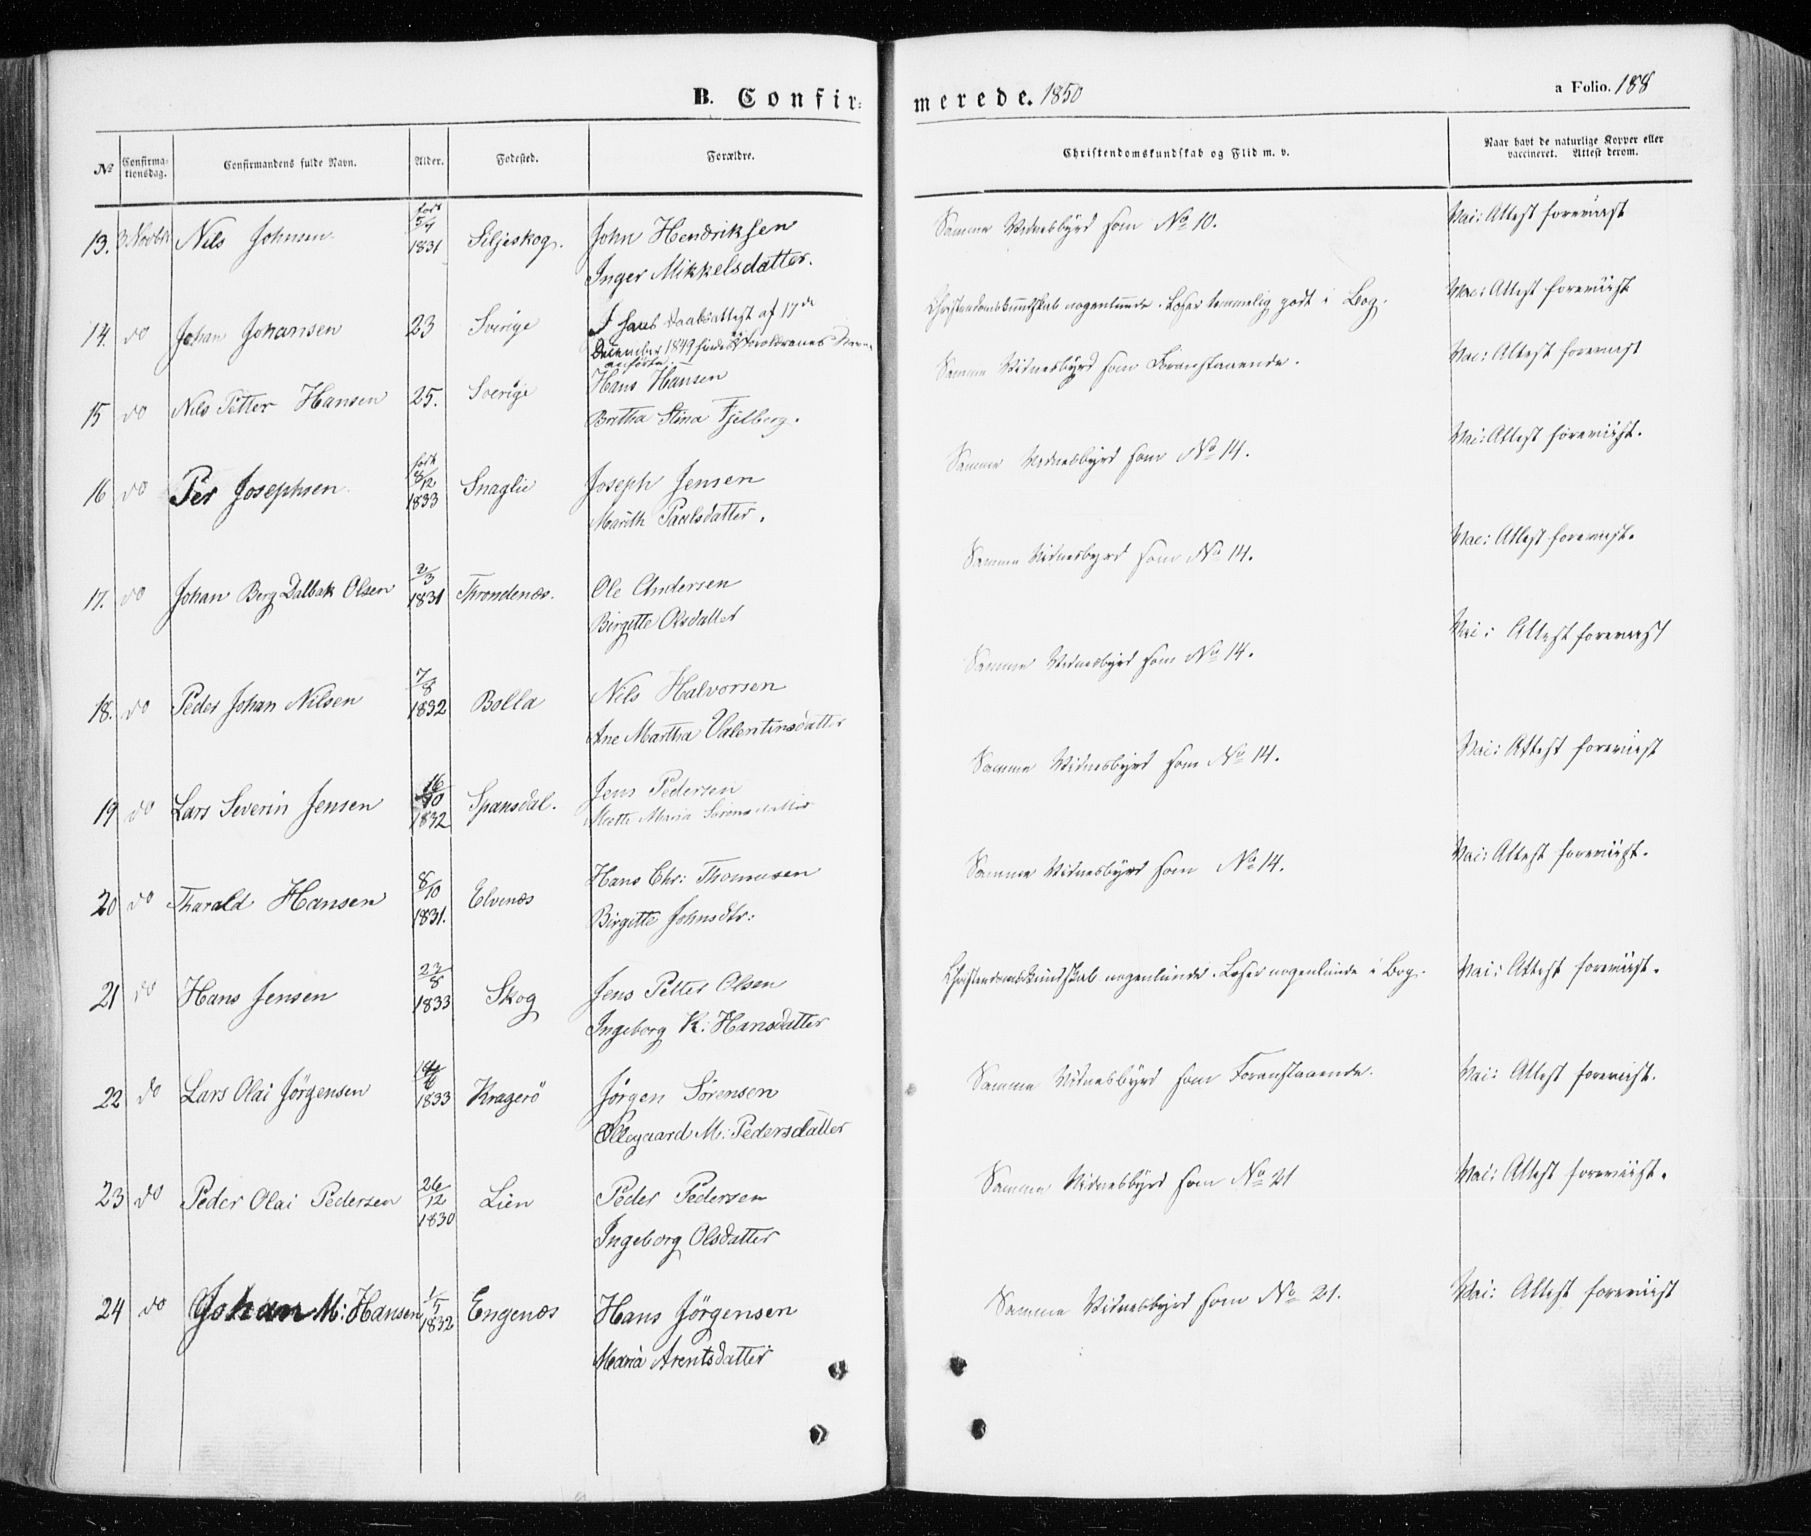 B. Confirmerede. 1850
a Folio. 188
No Confirmationsdag. Confirmandens fulde Navn. Alder. Fødested. Forældre. Christendomskundskab og Flid m. v. Naar havt de naturlige Kopper eller vaccineret. Attest derom.
13. 3. Novbr Nils Johnsen født 5/4 1831 Siljeskog. John Hendriksen Samme Vidnesbyrd som No 10. Vac: Attest foreviist
Inger Mikkelsdatter.
14. do Johan Johansen 23 Sverige I hans Daabsattest af 17de Christendomskundskab nogenlunde. Læser temmelig godt i Bog. Vac: Attest foreviist
December 1849 findes ei Forældrenes Navne
anførte.
15 do Nils Petter Hansen 25. Sverige Hans Hansen Samme Vidnesbyrd som Foranstaaende. Vac: Attest foreviist
Britha Stina Fjelberg.
16 do Per Josephsen født /12 1833 Snaglie Joseph Jensen Samme Vidnesbyrd som No 14. Vac: Attest foreviist.
Marith Paulsdatter.
17. do Johan Berg Dalbak Olsen 2/3 1831 Throndenæs. Ole Andersen Samme Vidnesbyrd som No 14. Vac: Attest foreviist.
Birgitte Olsdatter
18. do Peder Johan Nilsen 7/8 1832 Bolla Nils Halvorsen Samme Vidnesbyrd som No 14. Vac: Attest foreviist
Ane Martha Valentinsdatter
19 do Lars Severin Jensen 16/10 1832 Spansdal. Jens Pedersen Samme Vidnesbyrd som No 14. Vac: Attest foreviist
Mette Maria Sørensdatter
20 do Tharald Hansen 8/10 1831. Elvenæs Hans Chr: Thomasen Samme Vidnesbyrd som No 14. Vac: Attest foreviist.
Birgitte Johnsdtr:
21 do Hans Jensen 23/8 1833 Skog Jens Petter Olsen Christendomskundskab nogenlunde. Læser nogenlunde i Bog. Vac: Attest foreviist.
Ingeborg K: Hansdatter
22 do Lars Olai Jörgensen /6 1833 Kragerö Jørgen Sørensen Samme Vidnesbyrd som Foranstaaende. Vac: Attest foreviist.
Ollegaard M: Pedersdatter
23 do Peder Olai Pedersen 26/12 1830 Lien Peder Pedersen Samme Vidnesbyrd som No 21 Vac: Attest foreviist.
Ingeborg Olsdatter
24 do Johan M: Hansen 1/5 1832 Engenæs Hans Jörgensen Samme Vidnesbyrd som No 21. Vac: Attest foreviist
Maria Arentsdatter